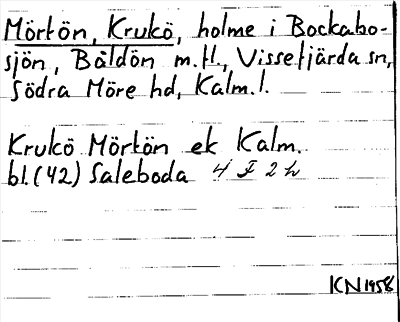 Mörtön, Krukö, holme i Bockabo-
sjön, Båldön m.fl., Vissefjärda sn,
Södra Möre hd, Kalm.l.
Krukö Mörtön ek Kalm.
bl.(42) Saleboda 4 F 2 h
KN1958